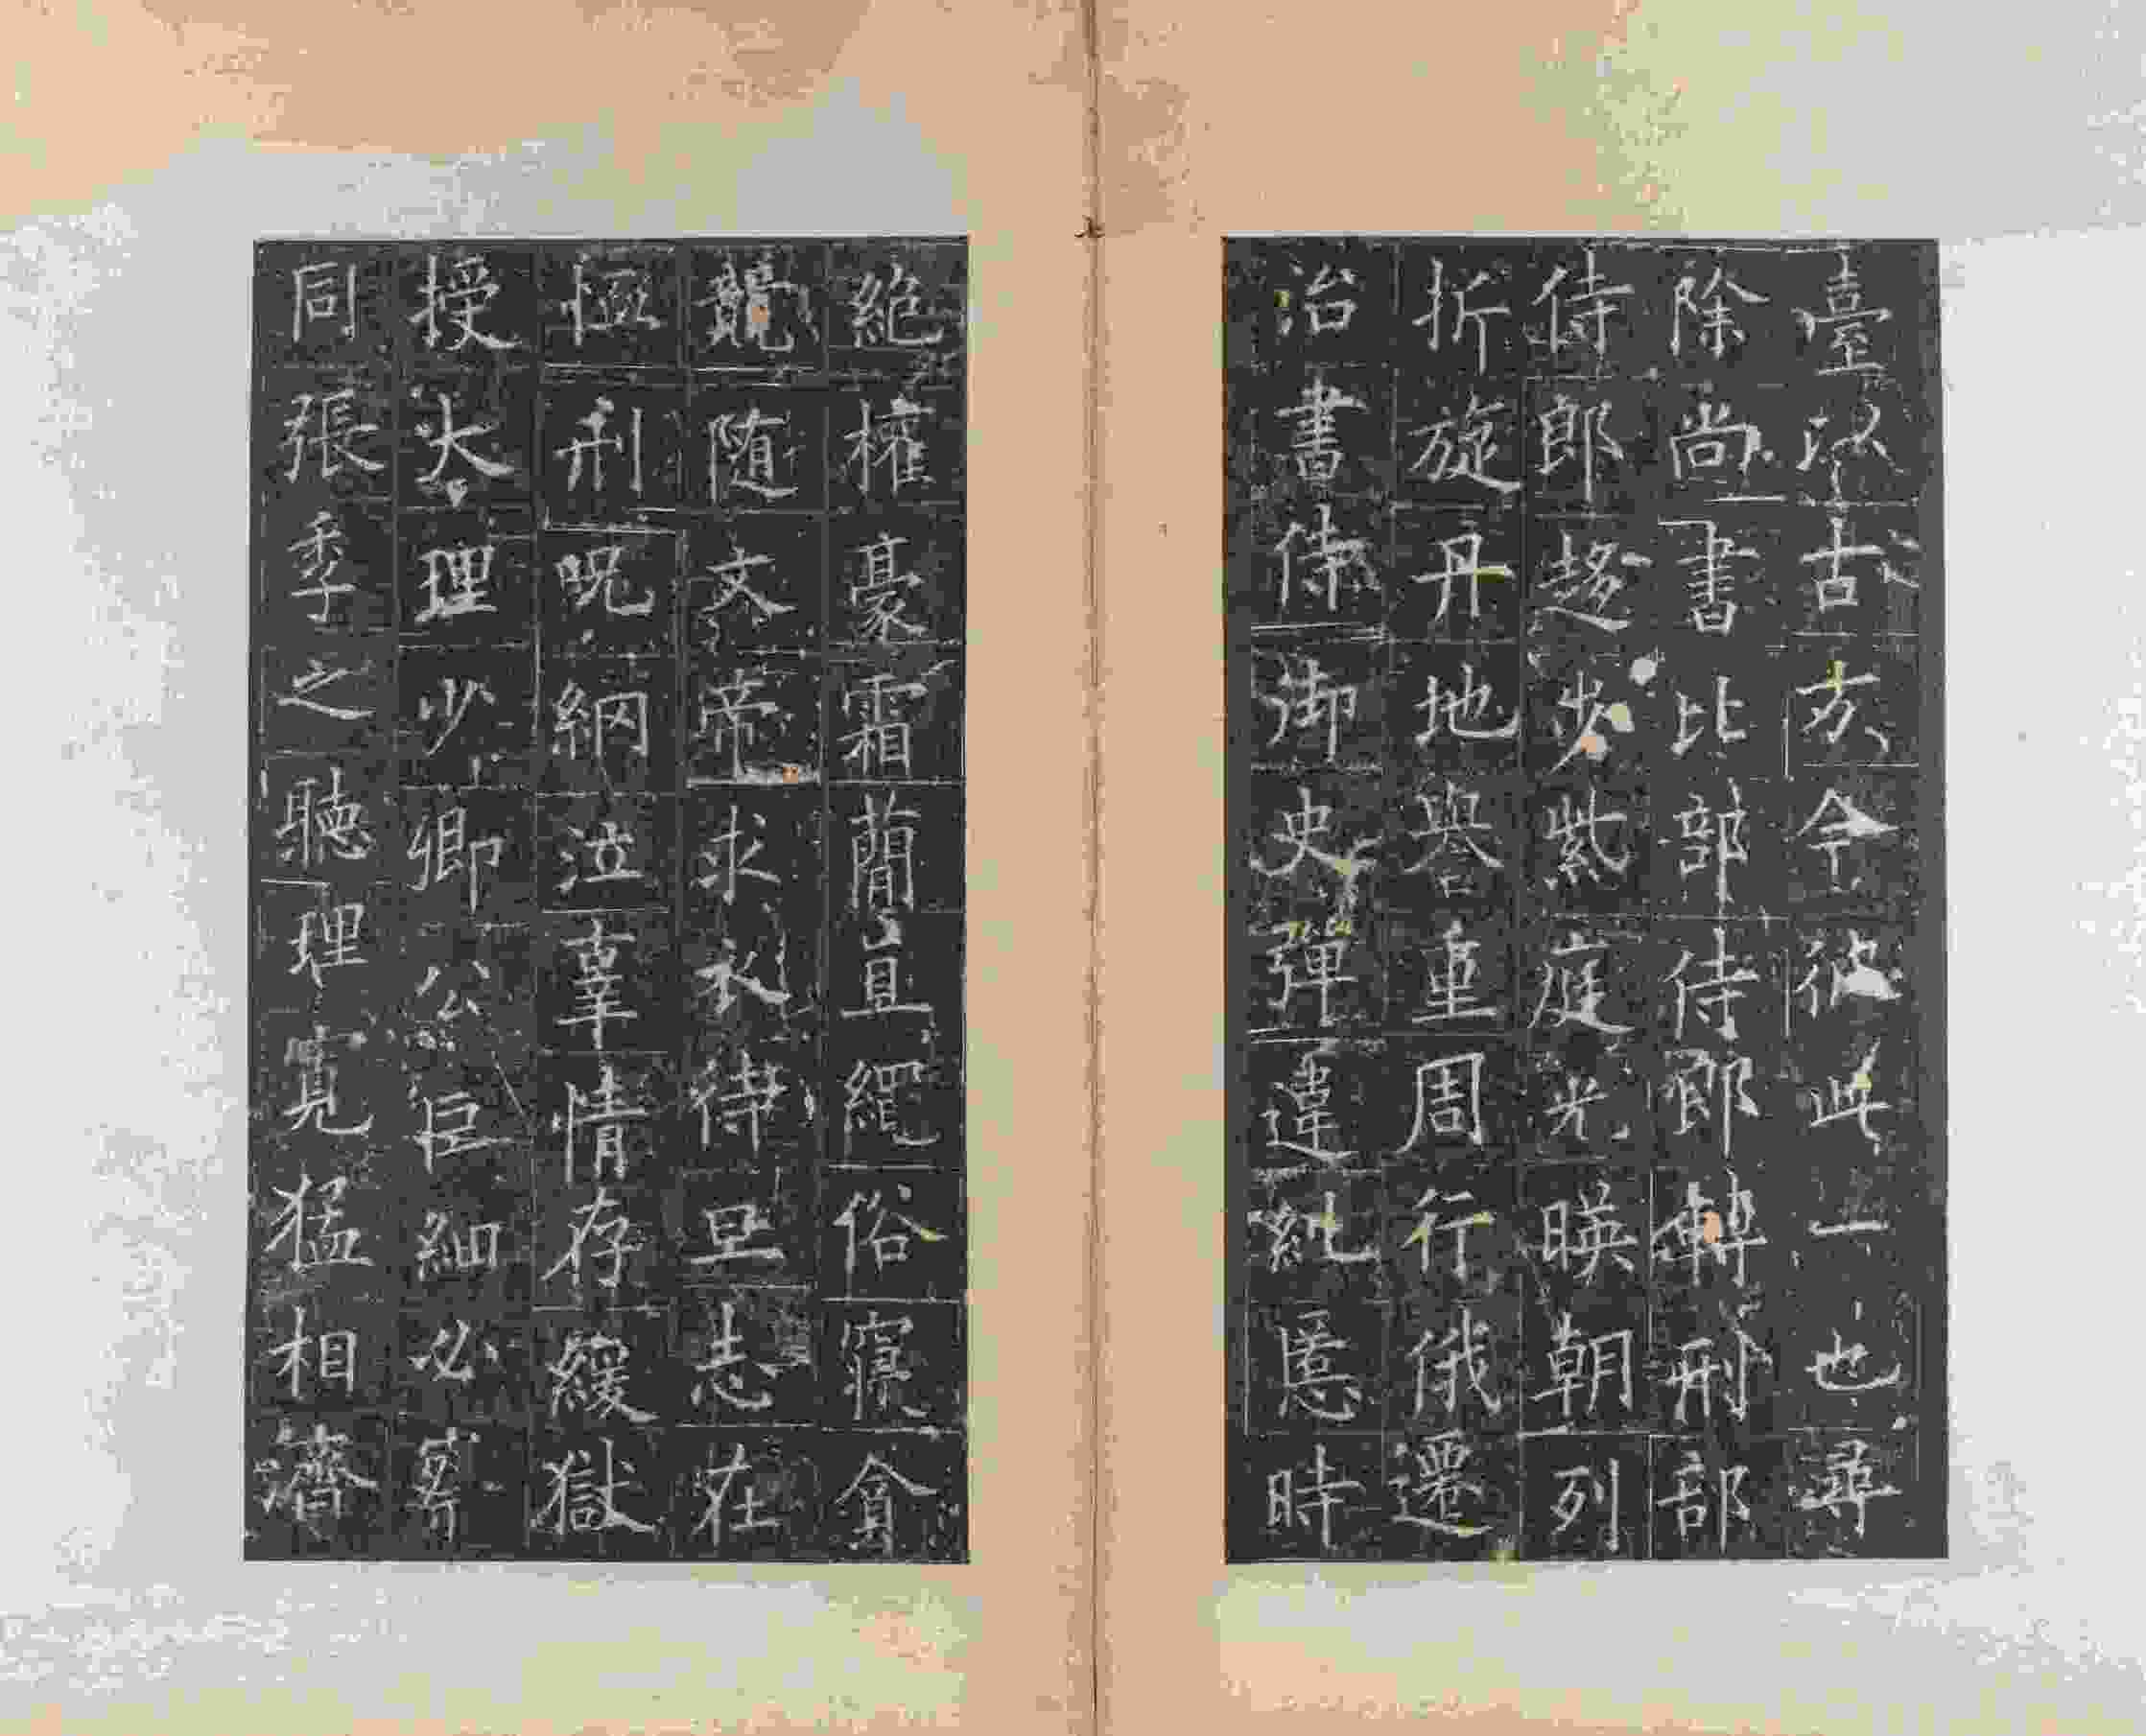 臺以古方今彼此一也尋
除尚書比部侍郎轉刑部
侍郎趍步紫庭光暎朝列
折旋丹地譽重周行俄遷
治書侍御史彈違糺慝時
絶權豪霜簡直繩俗寝貪
競随文帝求衣待旦志在
恤刑呪網泣辜情存緩獄
授大理少卿公巨細必察
同張季之聽理寛猛相濟